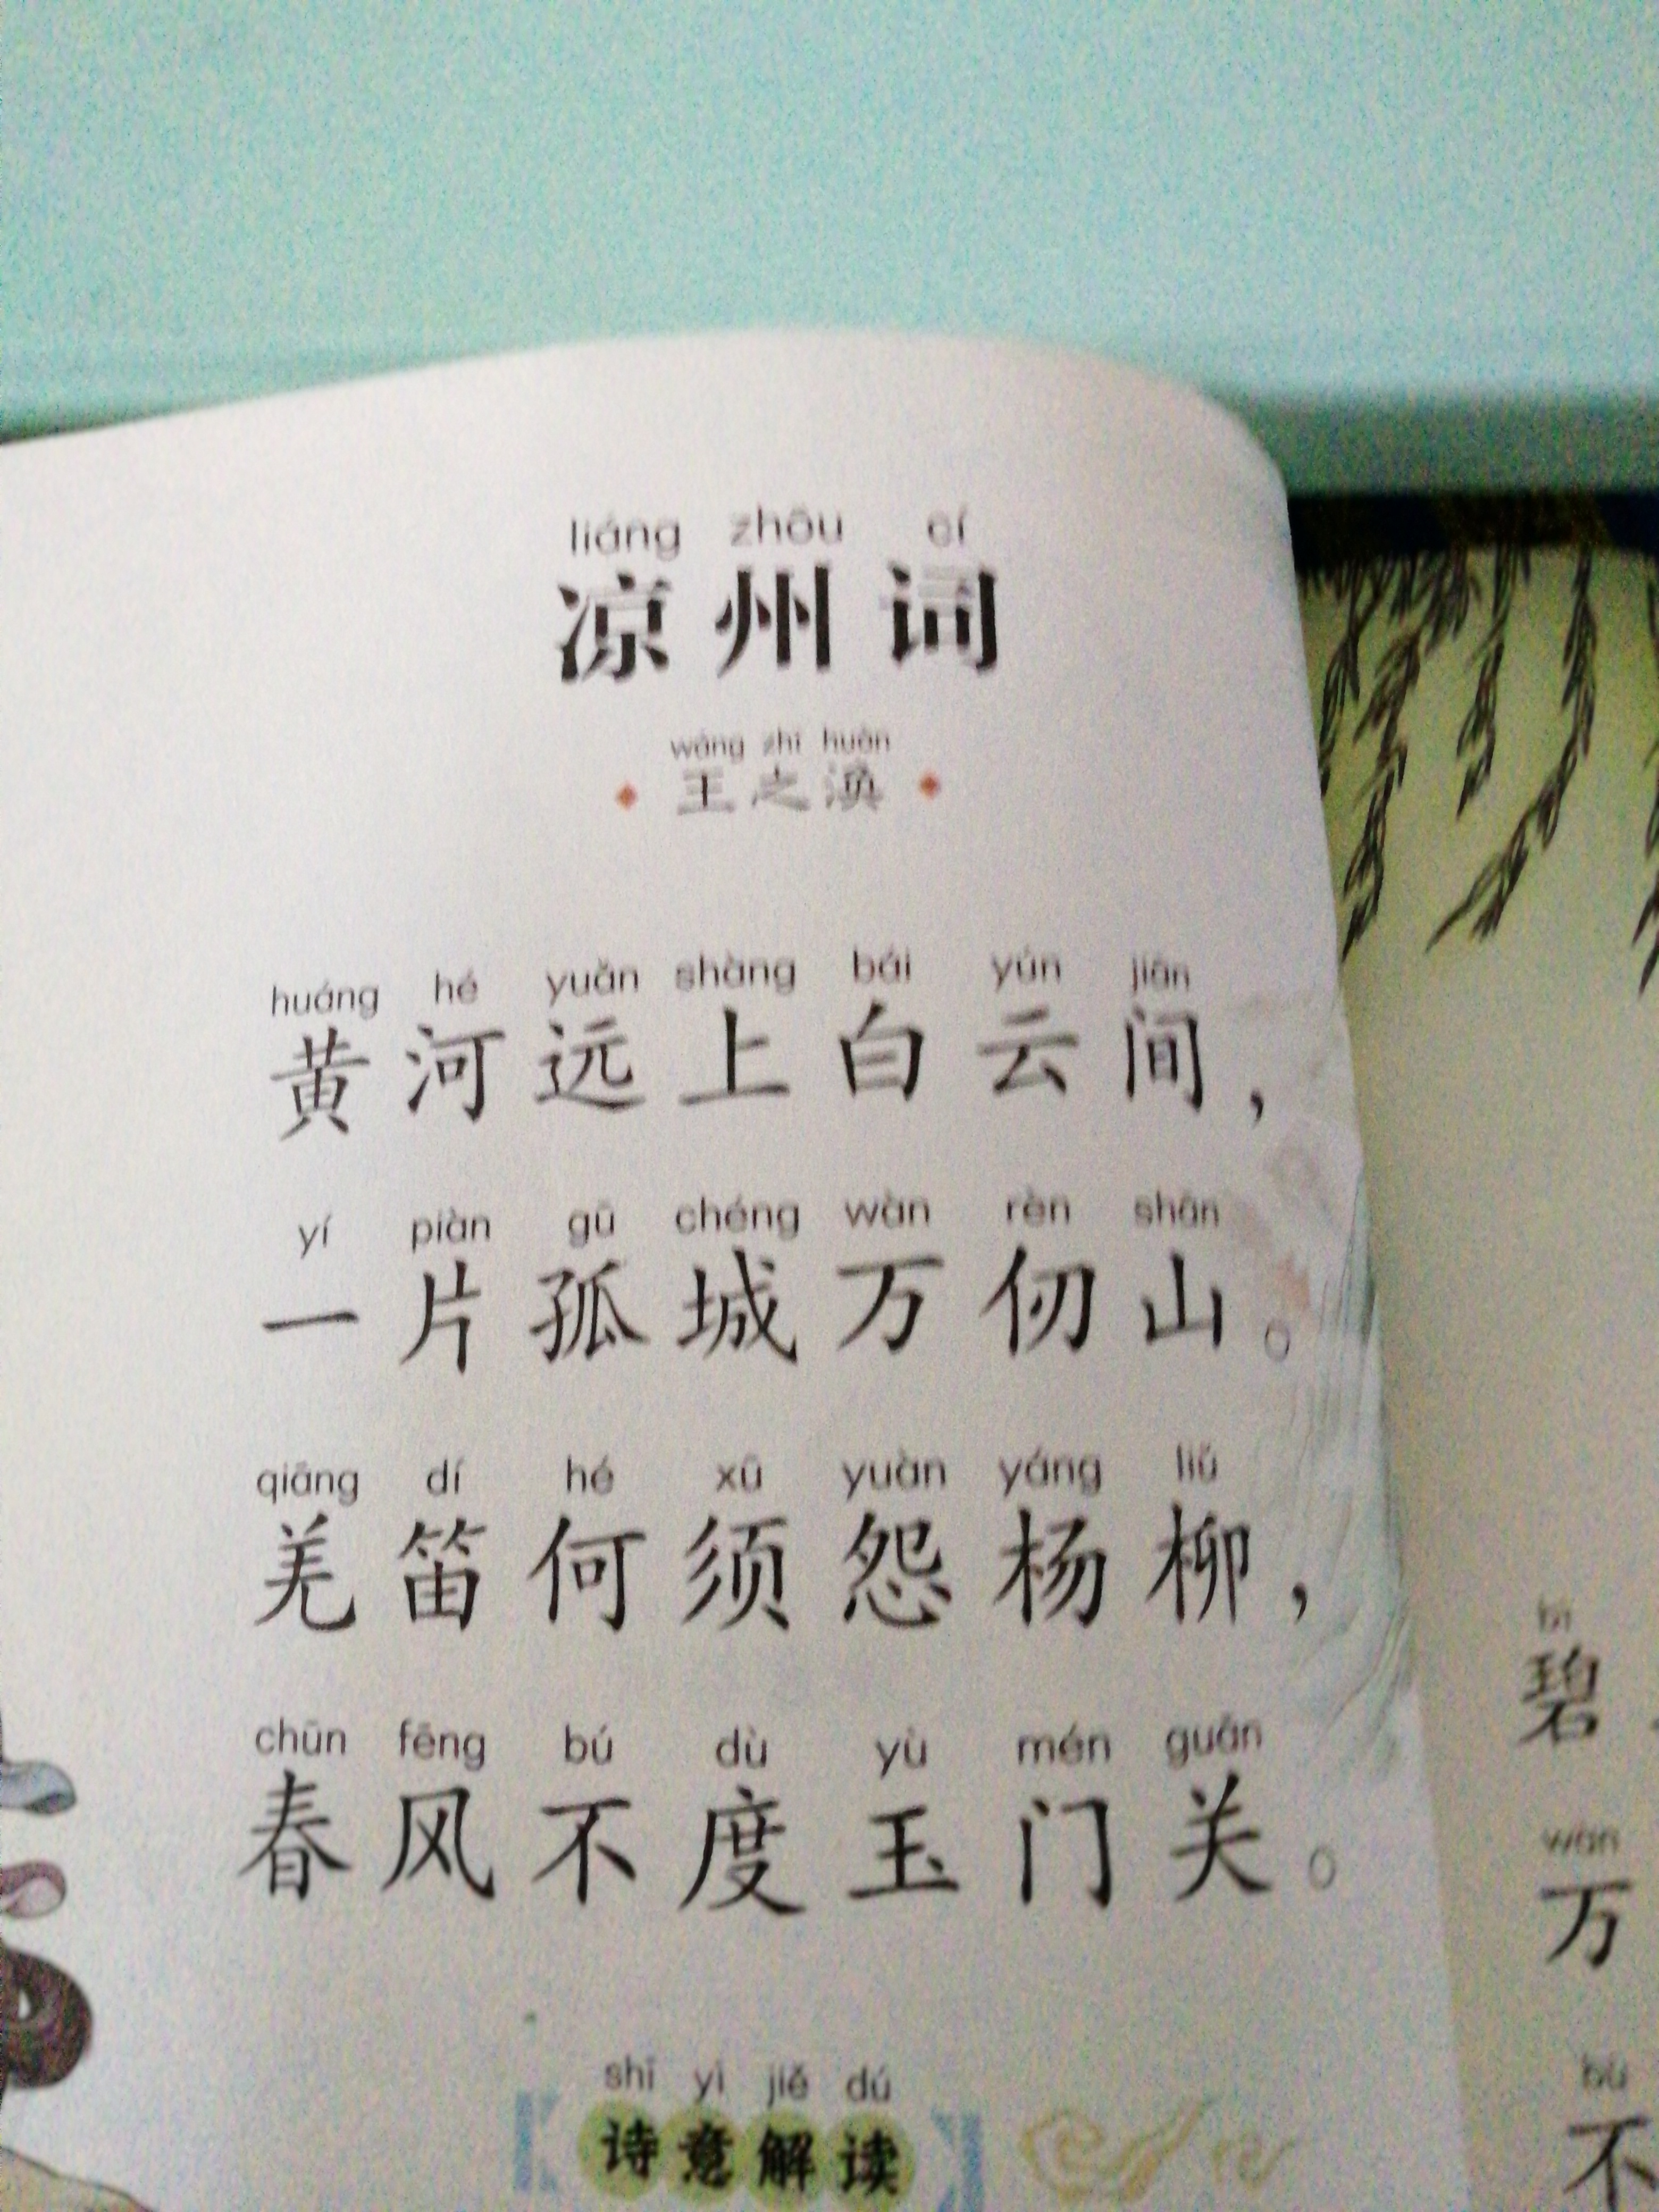 liáng zhōu cí
凉州词
wáng zhī huàn
王之涣
huáng hé yuǎn shàng bái yún jiān
黄河远上白云间，
yí piàn gū chéng wàn rèn shān
一片孤城万仞山。
qiāng dí hé xū yuàn yáng liǔ
羌笛何须怨杨柳，
chūn fēng bú dù yù mén guān
春风不度玉门关。
shī yì jiě dú
【诗意解读】
bì
碧
wàn
万
bù
不